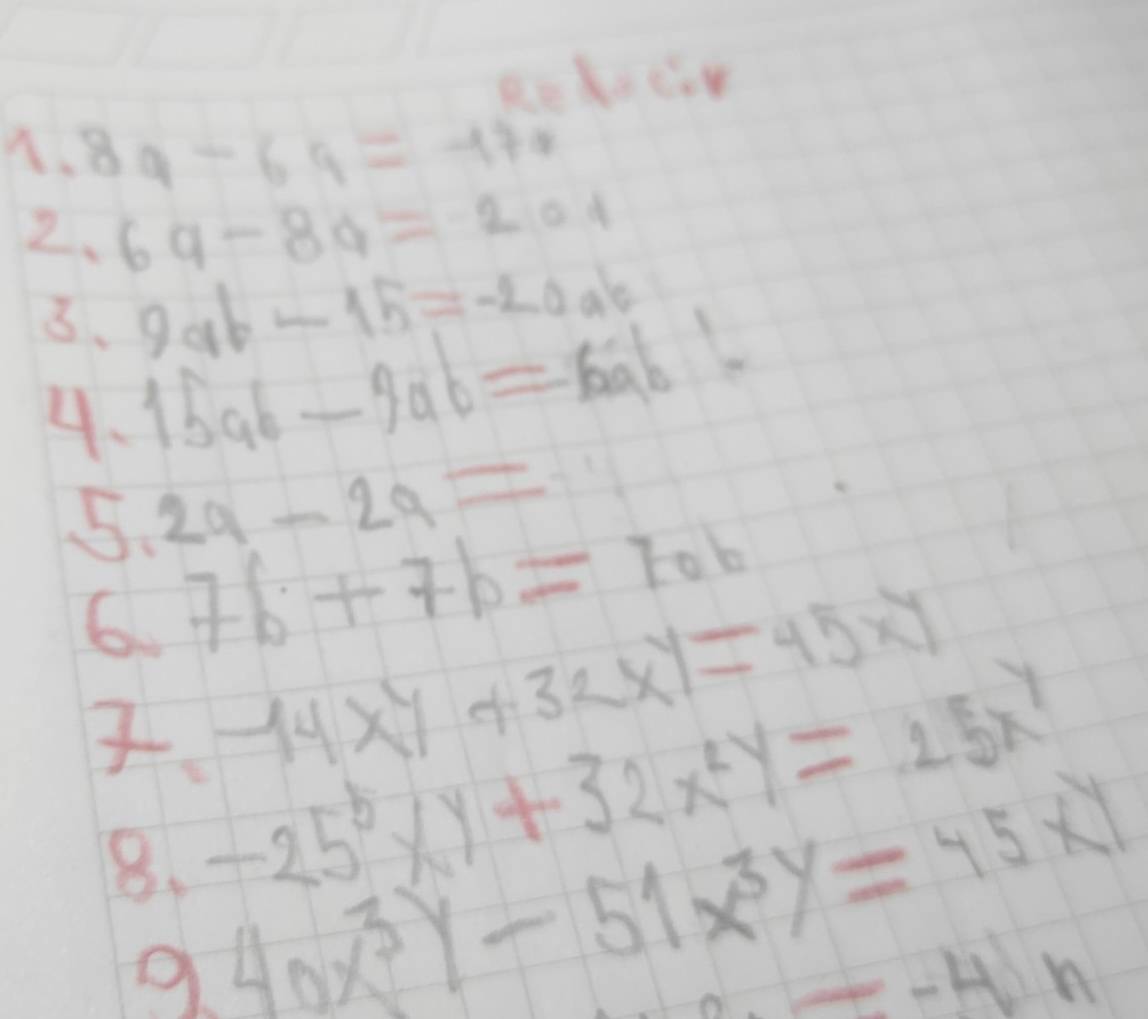 Reducir
1. 8a - 6a = -17a
2. 6a - 8a = 20a
3. 9ab - 15 = -20ab
4. 15ab - 9ab = -6ab
5. 2a - 2a =
6. 7b + 7b = 70b
7. -14xy + 32xy = 45xy
8. -25⁵xy + 32x²y = 25x^y
9. 40x³y - 51x³y = 45xy
= -4 n